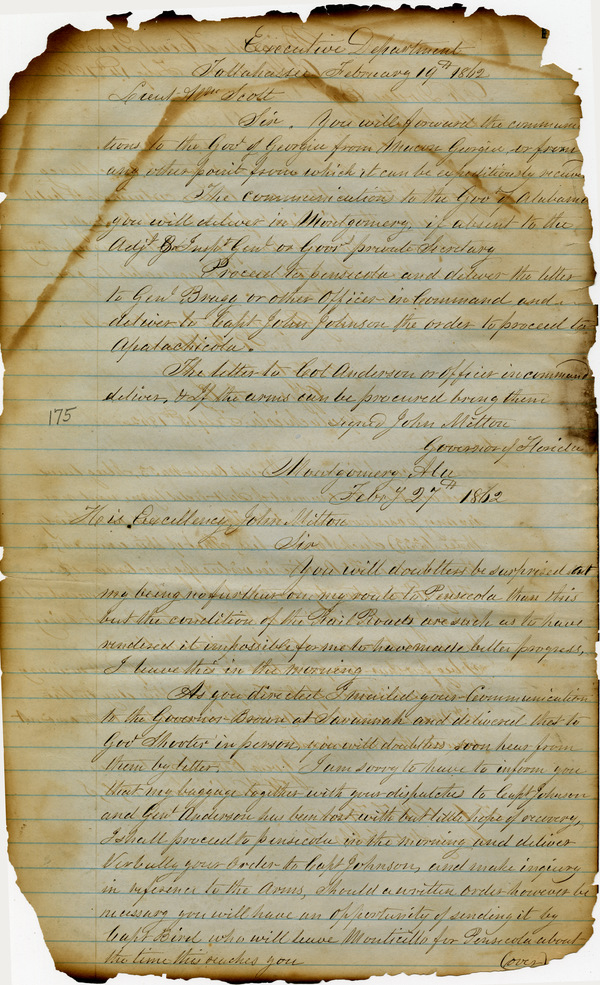 Executive Department
Tallahassee February 19th 1862
Lieut Wm Scott
Sir. You will forward the communica
tions to the Gov of Georgia from Macon Georgia or from
any other point from which it can be expeditiously received
The communication to the Gov of Alabama
you will deliver in Montgomery, if absent to the
Adjt & Inspt Genl or Govrs private Secretary
Proceed to pensicola and deliver the letter
to Genl Bragg or other Officer in Command and
deliver to Capt John Johnson the order to proceed to
Apalachicola.
The letter to Col Anderson or Officer in command
deliver, & If the arms can be procured bring them
Signed John Milton
Governor of Florida
175
Montgomery Ala
Feby 27th 1862
His Excellency John Milton
Sir
You will doubtless be surprised at
my being no further on my route to Pensicola than this
but the condition of the Rail Roads are such as to have
rendered it impossible for me to have made better progress,
I leave this in the morning
As you directed I mailed your Communication
to the Governor Brown at Savannah and delivered that to
Gov Shorter in person, you will doubtless soon hear from
them by letter. I am sorry to have to inform you
that my baggage together with your dispatches to Capt Johnson
and Genl Anderson has been lost with but little hope of recovery,
I shall proceed to pensicola in the morning and deliver
Verbally your Order to Capt Johnson, and make inquiry
in reference to the Arms, should a written order however be
necessary you will have an opportunity of sending it by
Capt Bird who will leave Monticello for Pensicola about
the time this reaches you (over)